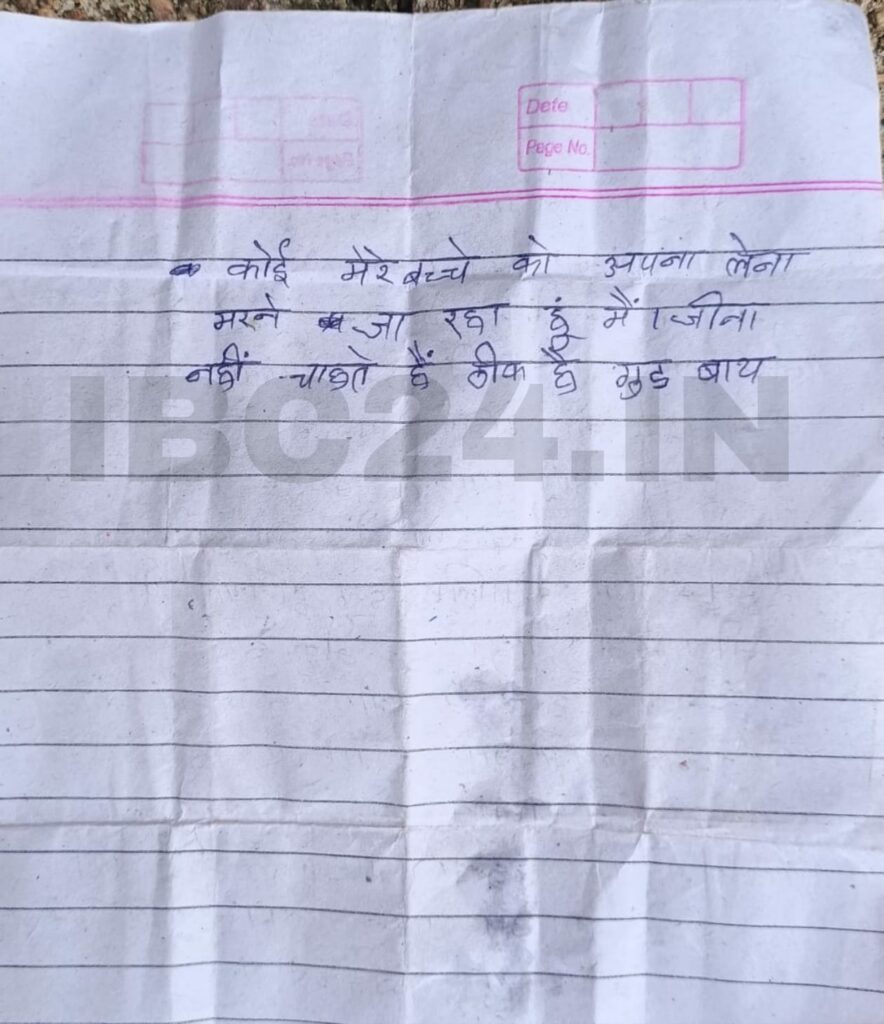 Date
Page No.
कोई मेरे बच्चे को अपना लेना
मरने जा रहा हूं मैं । जीना
नहीं चाहते हैं ठीक है गुड बाय
IBC24.IN